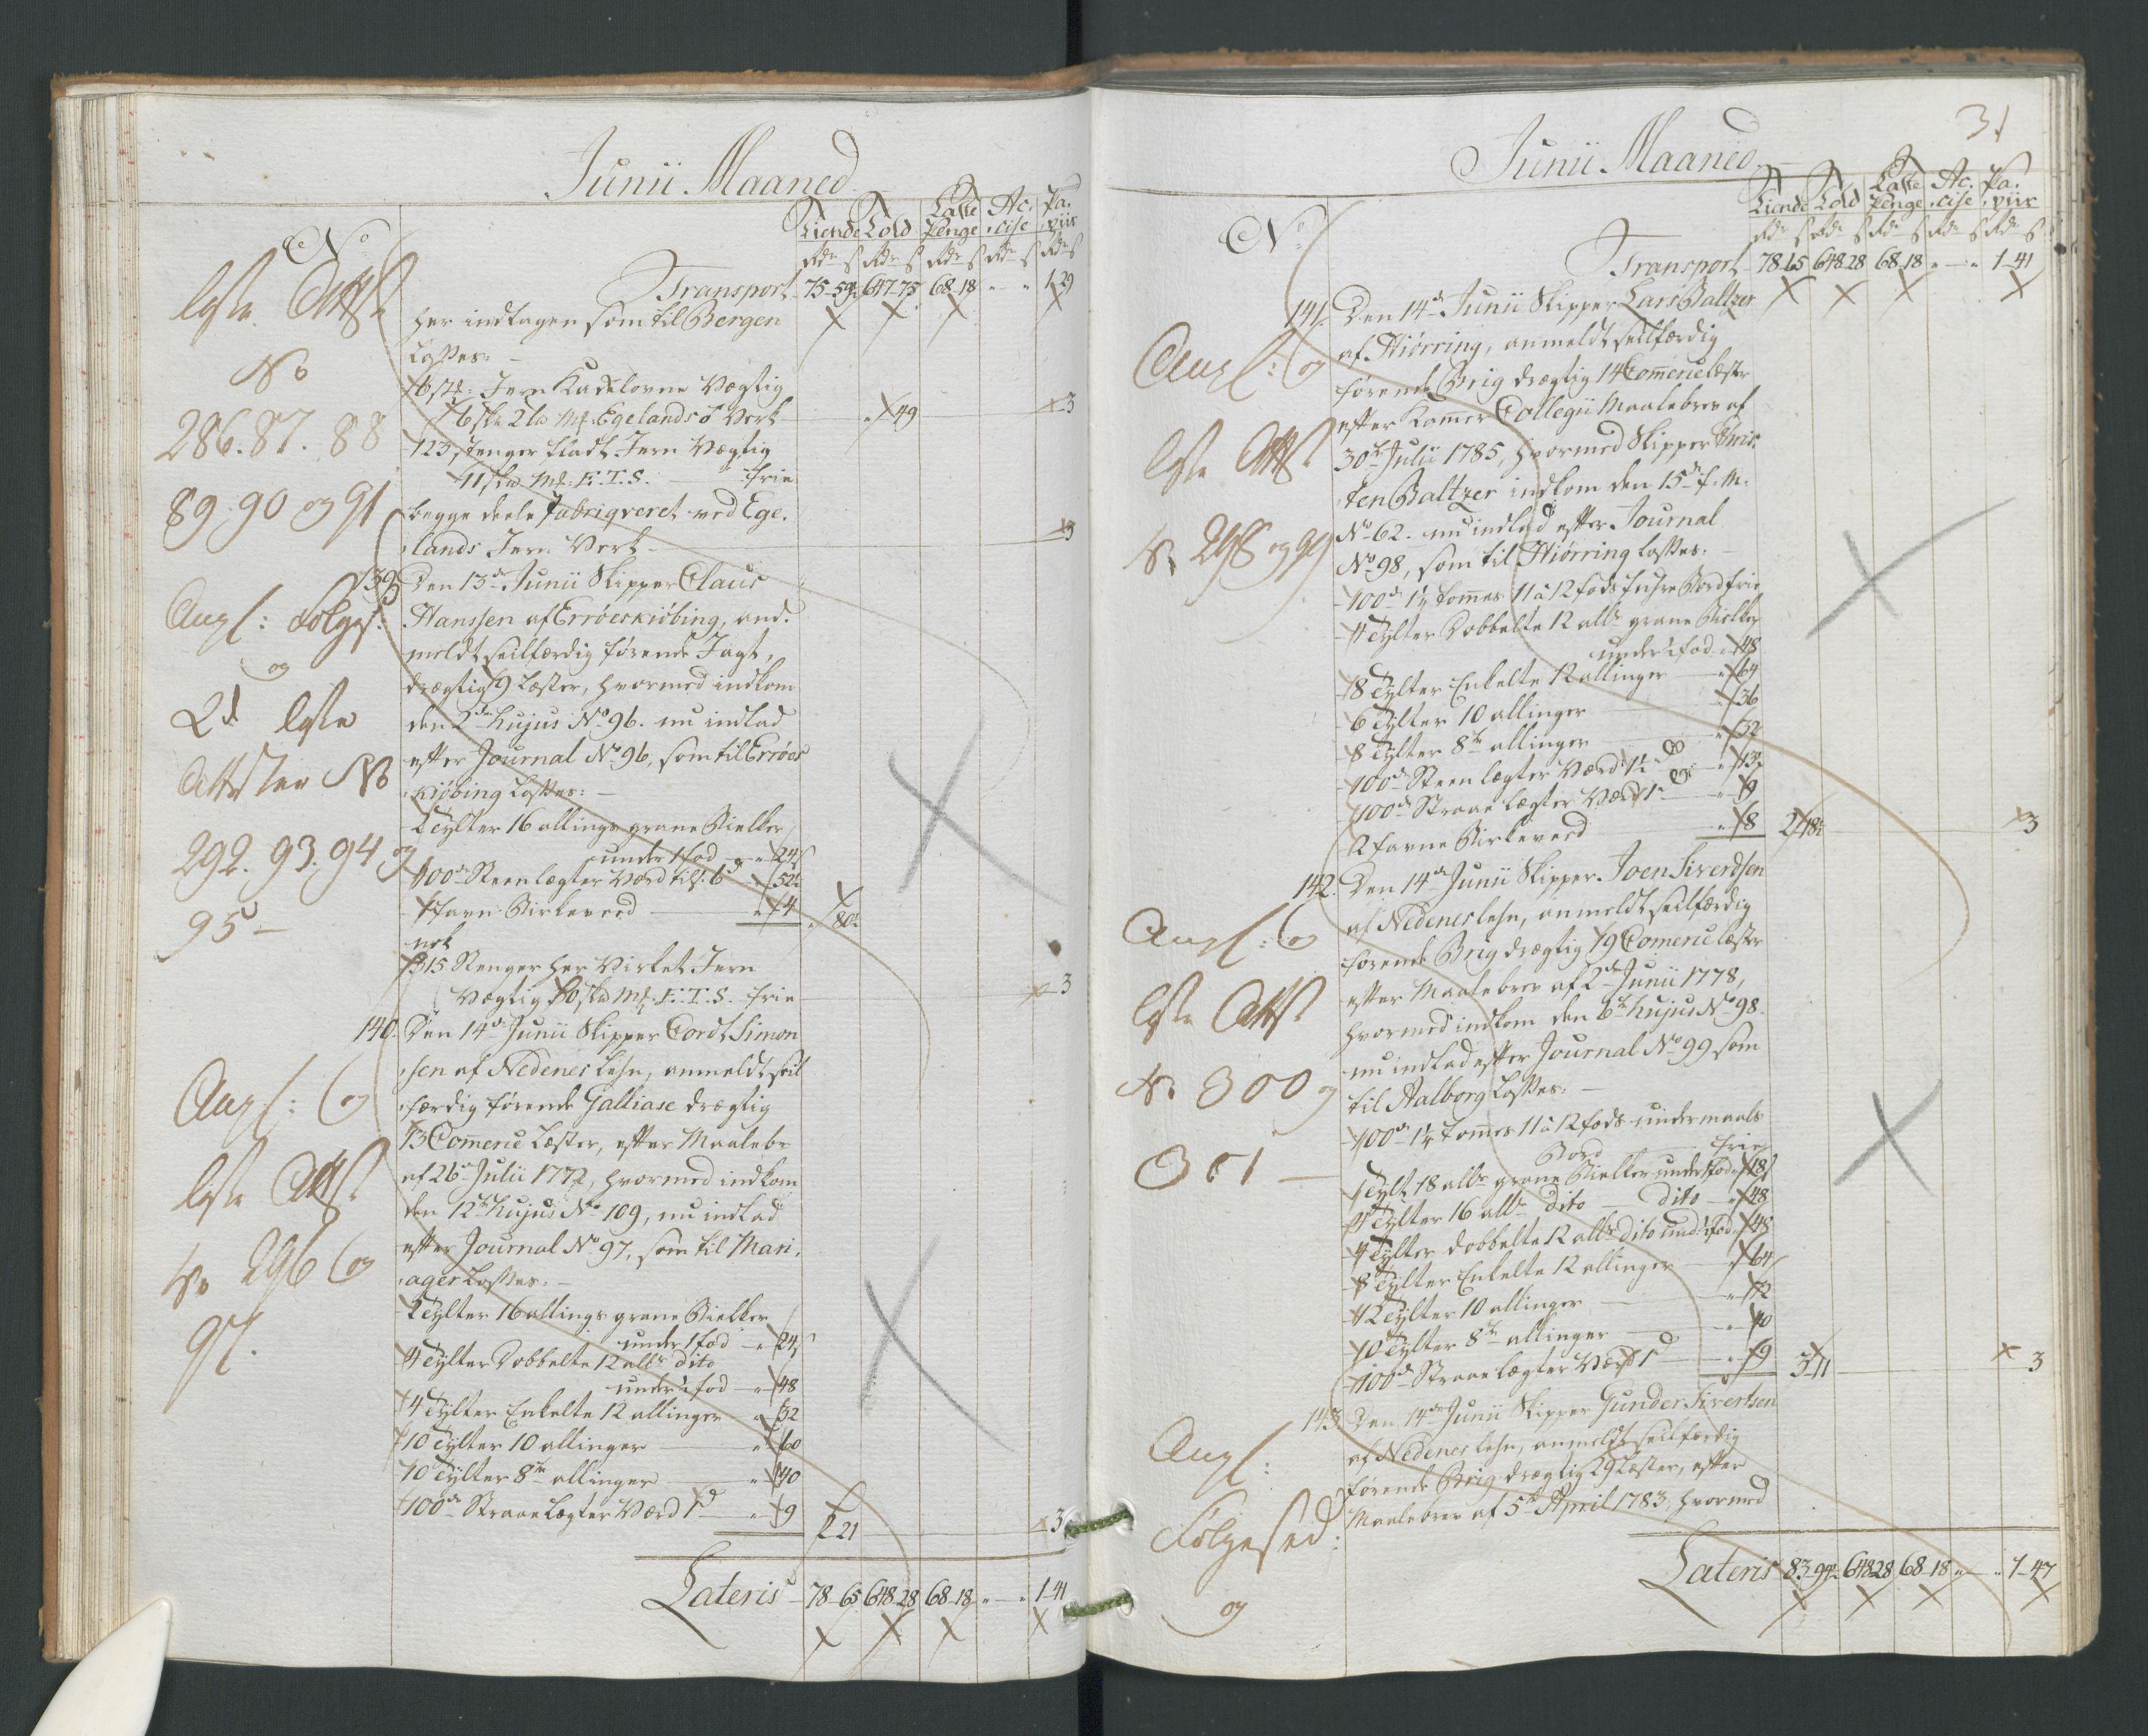 Junii Maaned
No
Tiende Told Læste Penge Ac- cise Pa- piir
Rdr s Rdr s Rdr s Rdr s Rdr s
Transport 75-59½ 647-75 68-18 " " 1-29
her indtagen som til Bergen
Losses:
6 stk: Jern Kackelovne Vægtig
6 skt 2 lt Mk: Egelands Verk " 49 3
123 Stenger Fladt Jern Vægtig
11 skt Mk: F.T.S. frie
begge deele Fabriqveret ved Ege-
lands Jern Verk 3
lgste Attst
No
286. 87. 88
89. 90 og 91
139 Den 13de Junii Skipper Claus
Hanssen af Erröeskiöbing, and-
meldt seilfærdig förende Jagt,
drægtig 9 Læster, hvormed indkom
den 2den hujus No 96. nu indlad
efter Journal No 96, som til Erröes
kiöbing Losses:
2 Tylter 16 allings grane Bielker
under 1 fod " 24
100de Steenlægter Værd 6 " 52½
1 Favn Birkeved " 4 " 80½
nok
315 Stenger her Virket Jern
Vægtig 10 skt Mk: F.T.S. frie 3
Angf: Fölges:
og
2d lgste
Attster No
292. 93. 94 og
95
140. Den 14de Junii Skipper Cordt Simon
sen af Nedenes Lehn, anmeldt seil
færdig förende Galliase drægtig
13 Comerce Læster, efter Maalebr
af 26de Julii 1772, hvormed indkom
den 12te hujus No 109, nu indlad
efter Journal No 97, som til Mari-
ager Losses.
2 Tylter 16 allings grane Bielker
under 1 fod " 24
4 Tylter Dobbelte 12 alls dito
under 1 fod " 48
4 Tylter Enkelte 12 allinger " 32
10 Tylter 10 allinger " 60
10 Tylter 8te allinger " 40
100de Straae Lægter Værd 1 " 9 2 21 3
Angf: og
lgste Attst
No 296 og
97.
Lateris 78-65 648-28 68-18 " " 1-41
31
Junii Maaned
No
Tiende Told Læste Penge Ac- cise Pa- piir
Rdr s Rdr s Rdr s Rdr s Rdr s
Transport 78-65 648-28 68-18 " " 1-41
141. Den 14de Junii Skipper Lars Baltzer
af Hiörring, anmeldt seilfærdig
förende Brig drægtig 14 Comerce læster
efter Kamer Collegii Maalebrev af
30te Julii 1785, hvormed Skipper Chris-
ten Baltzer indkom den 15de f. M.
No 62. nu indlad efter Journal
No 98, som til Hiörring losses.
100de 1¼ tommes 11 à 12 fods fuhre Bord frie
4 Tylter Dobbelte 12 alls grane Bielker
under 1 fod " 48
8 Tylter Enkelte 12 allinger " 64
6 Tylter 10 allinger " 36
8 Tylter 8te allinger " 32
100de Steenlægter Værd 1½ " 13½
100de Straae lægter Værd 1 " 9
2 favne Birkeved " 8 2-18½ 3
Angf: og
lgste Attst
No 298 og 99
142. Den 14de Junii Skipper Joen Sivertsen
af Nedenes lehn, anmeldt seilfærdig
förende Brig drægtig 19 Comerce læster
efter Maalebrev af 2de Junii 1778,
hvormed indkom den 6te hujus No 98.
nu indlad efter Journal No 99 som
til Aalborg Losses.
100de 1¼ tommes 11 à 12 fods undermaals
Bord frie
1 Tylt 18 alls grane Bielker under 1 fod " 18
4 Tylter 16 alls dito dito " 48
4 Tylter dobbelte 12 alls dito und: 1 fod " 48
8 Tylter Enkelte 12 allinger " 64
12 Tylter 10 allinger " 72
10 Tylter 8te allinger " 40
100de Straae lægter Værd 1 " 9 3-11 3
Angf: og
lgste Attst
No 300 og
301
143 Den 14de Junii Skipper Gunder Sivertsen
af Nedenes lehn, anmeldt seilfærdig
förende Brig drægtig 29 Læster, efter
Maalebrev af 5te April 1783, hvormed
Angf:
Fölgesed:
og
Lateris 83-94½ 648-28 68-18 " " 1-47